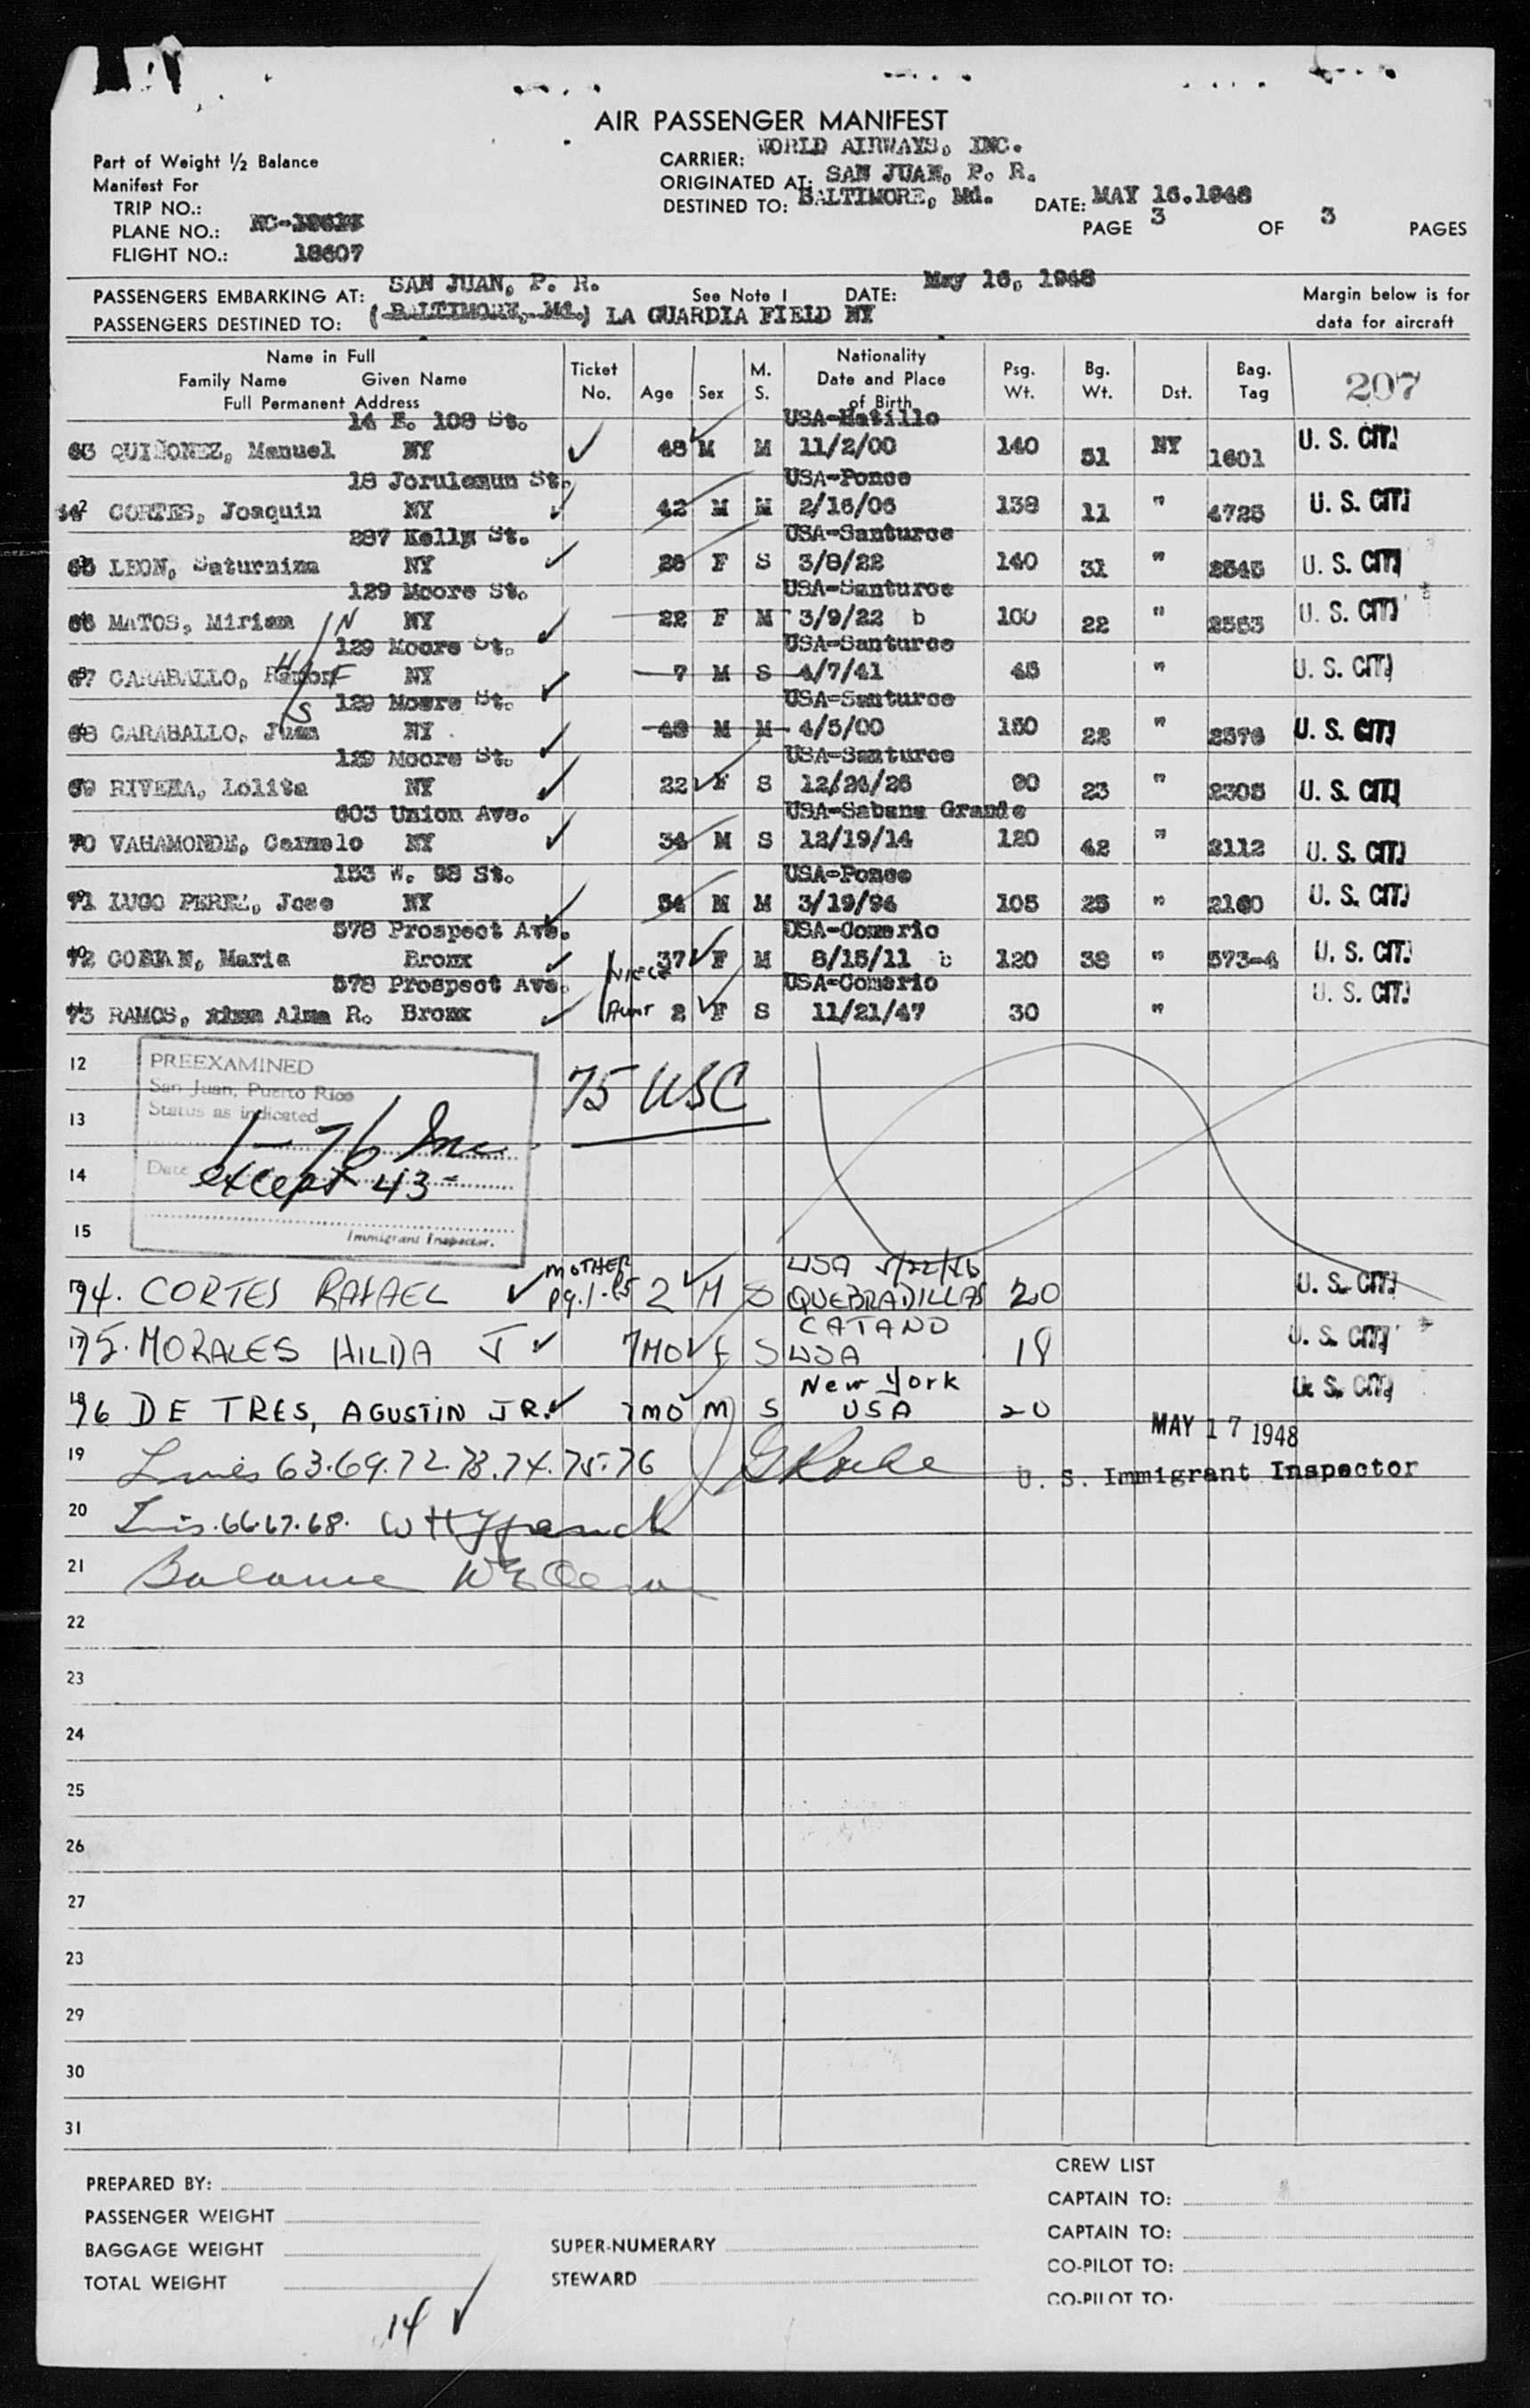 AIR PASSENGER MANIFEST
Part of Weight ½ Balance
Manifest For
TRIP NO.:
PLANE NO.:
FLIGHT NO.: 18607
CARRIER: WORLD AIRWAYS, INC.
ORIGINATED AT: SAN JUAN, P. R.
DESTINED TO: BALTIMORE, Md. DATE: MAY 16.1948
PAGE 3 OF 3 PAGES
PASSENGERS EMBARKING AT: SAN JUAN, P. R. See Note 1 DATE: May 16, 1948
PASSENGERS DESTINED TO: (BALTIMORE, Md.) LA GUARDIA FIELD NY
Margin below is for
data for aircraft
Name in Full
Family Name Given Name
Full Permanent Address
Ticket No. Age Sex M. S. Nationality Date and Place of Birth Psg. Wt. Bg. Wt. Dst. Bag. Tag 207
14 E. 108 St. USA-Hatillo
63 QUIÑONEZ, Manuel NY 48 M M 11/2/00 140 51 NY 1601 U. S. CIT.
18 St. USA-Ponce
CORTES, Joaquin NY 42 M M 2/16/06 138 11 " 4725 U. S. CIT.
287 Kelly St. USA-Santurce
65 LEON, Saturnina NY 26 F S 3/8/22 140 31 " 2545 U. S. CIT.
129 Moore St. USA-Santurce
66 MATOS, Miriam NY 22 F M 3/9/22 b 100 22 " 2553 U. S. CIT.
129 Moore St. USA-Santurce
67 CARABALLO, Ramon NY 7 M S 4/7/41 45 " U. S. CIT.
129 Moore St. USA-Santurce
68 CARABALLO, Juan NY 48 M M 4/5/00 150 22 " 2576 U. S. CIT.
129 Moore St. USA-Santurce
69 RIVERA, Lolita NY 22 F S 12/24/26 90 23 " 2305 U. S. CIT.
603 Union Ave. USA-Sabana Grande
70 VAHAMONDE, Carmelo NY 34 M S 12/19/14 120 42 " 2112 U. S. CIT.
153 W. 98 St. USA-Ponce
71 LUGO PEREZ, Jose NY 54 M M 3/19/94 105 25 " 2160 U. S. CIT.
578 Prospect Ave. USA-Comerio
72 Maria Bronx 37 F M 8/15/11 b 120 38 " 573-4 U. S. CIT.
NIECE
578 Prospect Ave. USA-Comerio
73 RAMOS, Alma R. Bronx Aunt 2 F S 11/21/47 30 " U. S. CIT.
12
PREEXAMINED
San Juan, Puerto Rico
Status as indicated
75 USC
13
1-76 Inc
14
Date except 43-
15
Immigrant Inspector.
MOTHER USA
74. CORTES RAFAEL pg. 1- 2 M S QUEBRADILLAS 20 U. S. CIT.
CATANO
75. MORALES HILDA J 7MO F S USA 18 U. S. CIT.
New York
76 DE TRES, AGUSTIN JR. 7MO M S USA 20 U. S. CIT.
MAY 17 1948
19 Lines 63.69.72.73.74.75.76
U. S. Immigrant Inspector
20 66.67.68.
21 Balance
22
23
24
25
26
27
23
29
30
31
PREPARED BY:
PASSENGER WEIGHT
BAGGAGE WEIGHT
TOTAL WEIGHT
SUPER-NUMERARY
STEWARD
CREW LIST
CAPTAIN TO:
CAPTAIN TO:
CO-PILOT TO:
CO-PILOT TO:
14